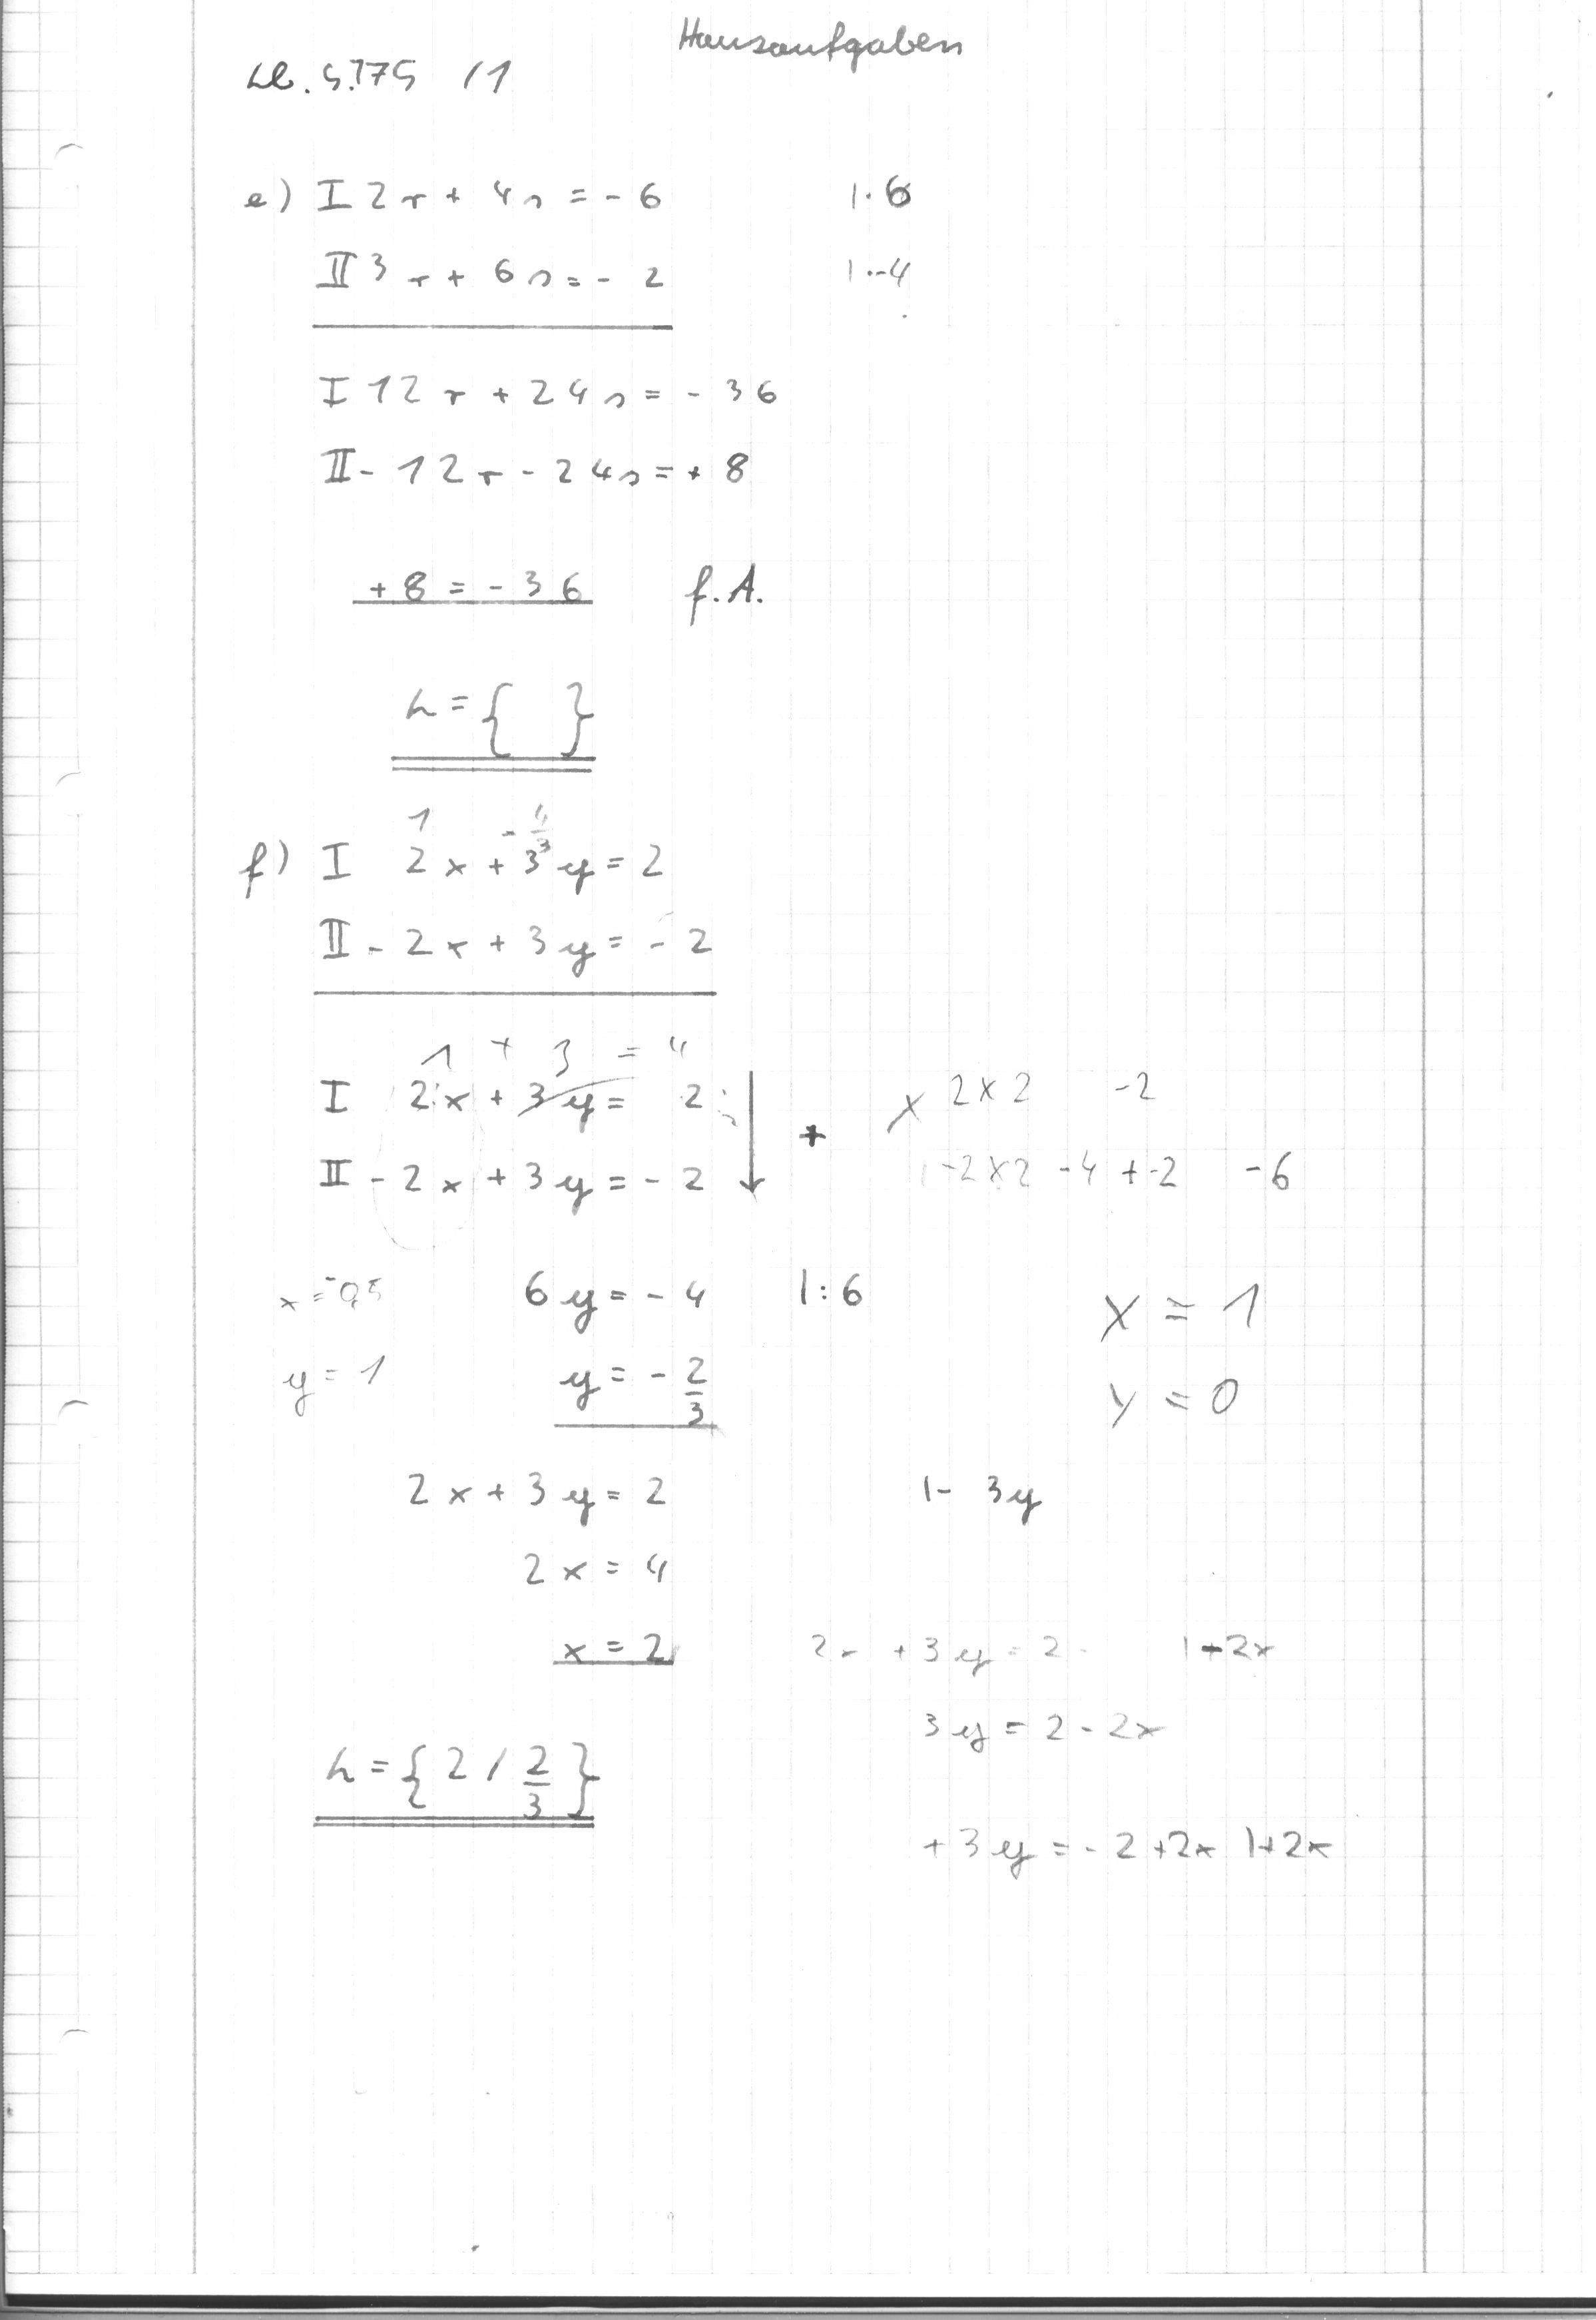 Hausaufgaben
Lb. S.175 /1
e) I 2r + 4s = - 6 |·6
II 3r + 6s = - 2 |·-4
I 12r + 24s = - 36
II - 12r - 24s = + 8
+ 8 = - 36 f.A.
L = { }
1 - 4/3
f) I 2x + 3y = 2
II - 2x + 3y = - 2
1 + 3 = 4
I 2x + 3y = 2
+ x 2x2 -2
II - 2x + 3y = - 2 -2x2 -4 + -2 -6
x = -0,5 6y = - 4 |:6 x = 1
y = 1 y = - 2/3 y = 0
2x + 3y = 2 |- 3y
2x = 4
x = 2 2x + 3y = 2 |-2x
3y = 2 - 2x
L = { 2 / 2/3 }
+ 3y = - 2 + 2x |+2x